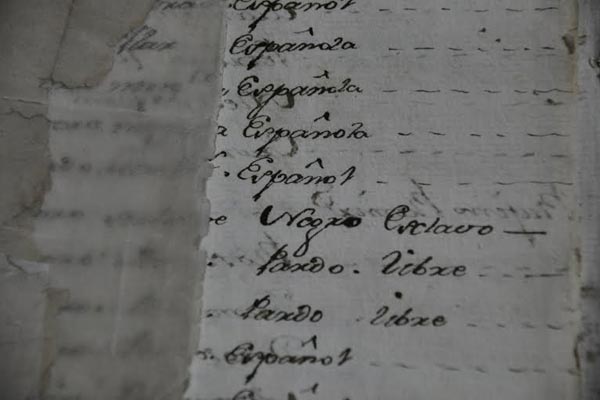 Español
Española
Española
Española
Español
Negro Esclavo
Pardo. libre
Pardo libre
Español